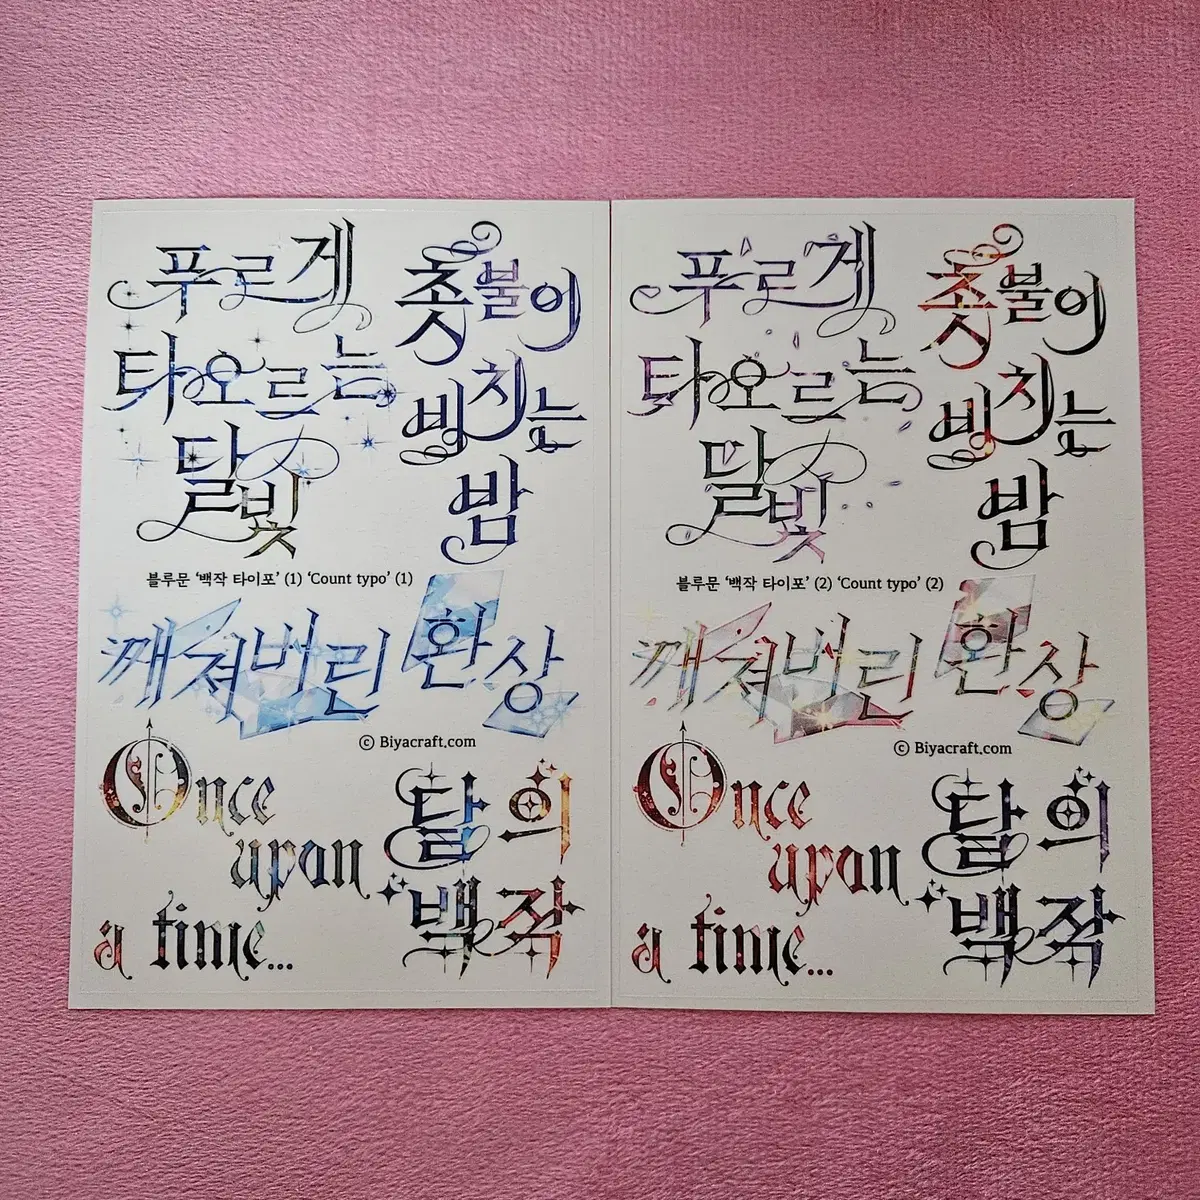 푸르게
타오르는
달빛
촛불이
비치는
밤
블루문 ‘백작 타이포’ (1) ‘Count typo’ (1)
깨져버린 환상
ⓒ Biyacraft.com
Once
upon
a time...
달의
백작
푸르게
타오르는
달빛
촛불이
비치는
밤
블루문 ‘백작 타이포’ (2) ‘Count typo’ (2)
깨져버린 환상
ⓒ Biyacraft.com
Once
upon
a time...
달의
백작